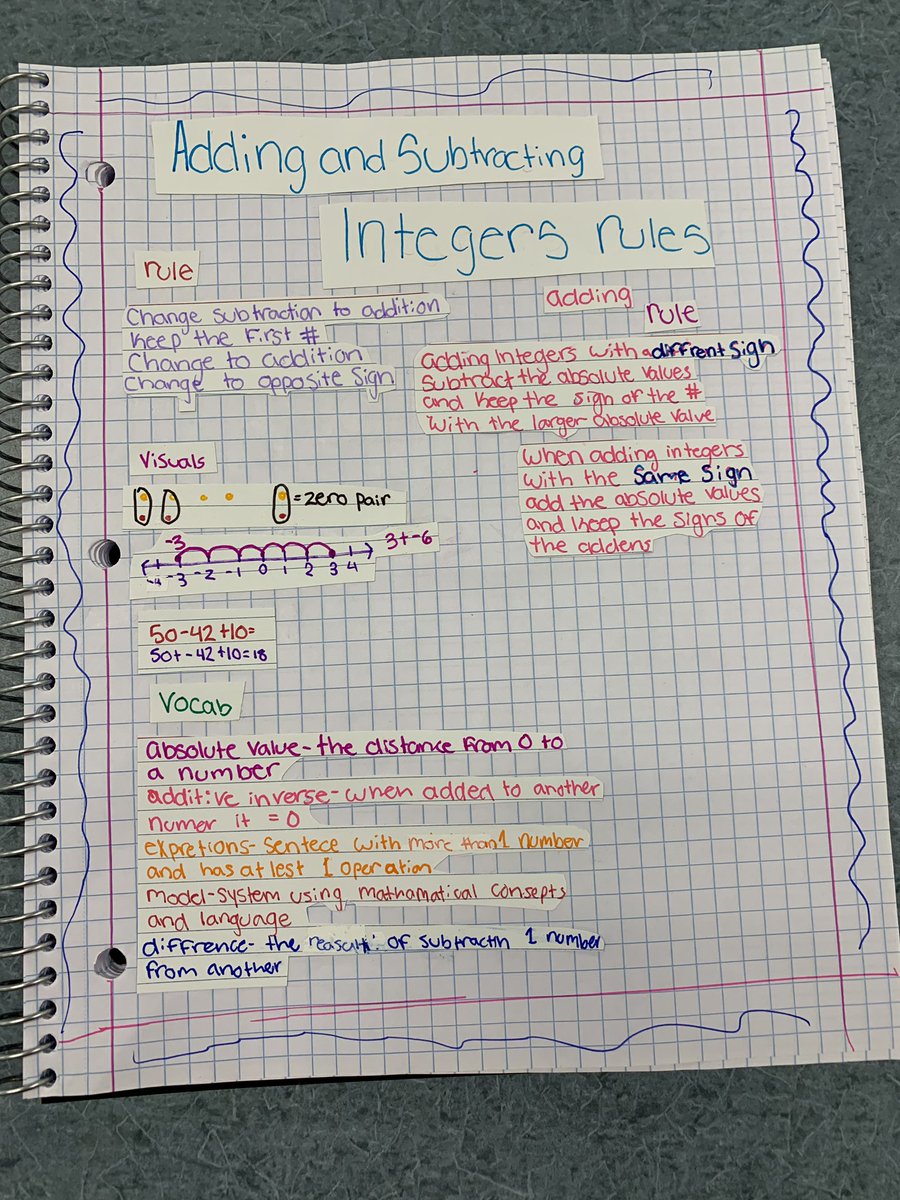 Adding and Subtracting
Integers rules
rule
Change subtraction to addition
Keep the First #
Change to addition
Change to opposite Sign
adding
rule
adding Integers with a diffrent Sign
Subtract the absolute values
and Keep the Sign of the #
with the larger absolute value
when adding integers
with the Same Sign
add the absolute values
and Keep the Signs of
the addens
Visuals
=zero pair
-3
3+-6
-4 -3 -2 -1 0 1 2 3 4
50-42+10=
50+-42+10=18
Vocab
absolute value-the distance From 0 to
a number
additive inverse-when added to another
numer it =0
expretions- Sentece with more than 1 number
and has at lest 1 operation
model-System using mathamatical consepts
and language
diffrence- the of subtractin 1 number
from another